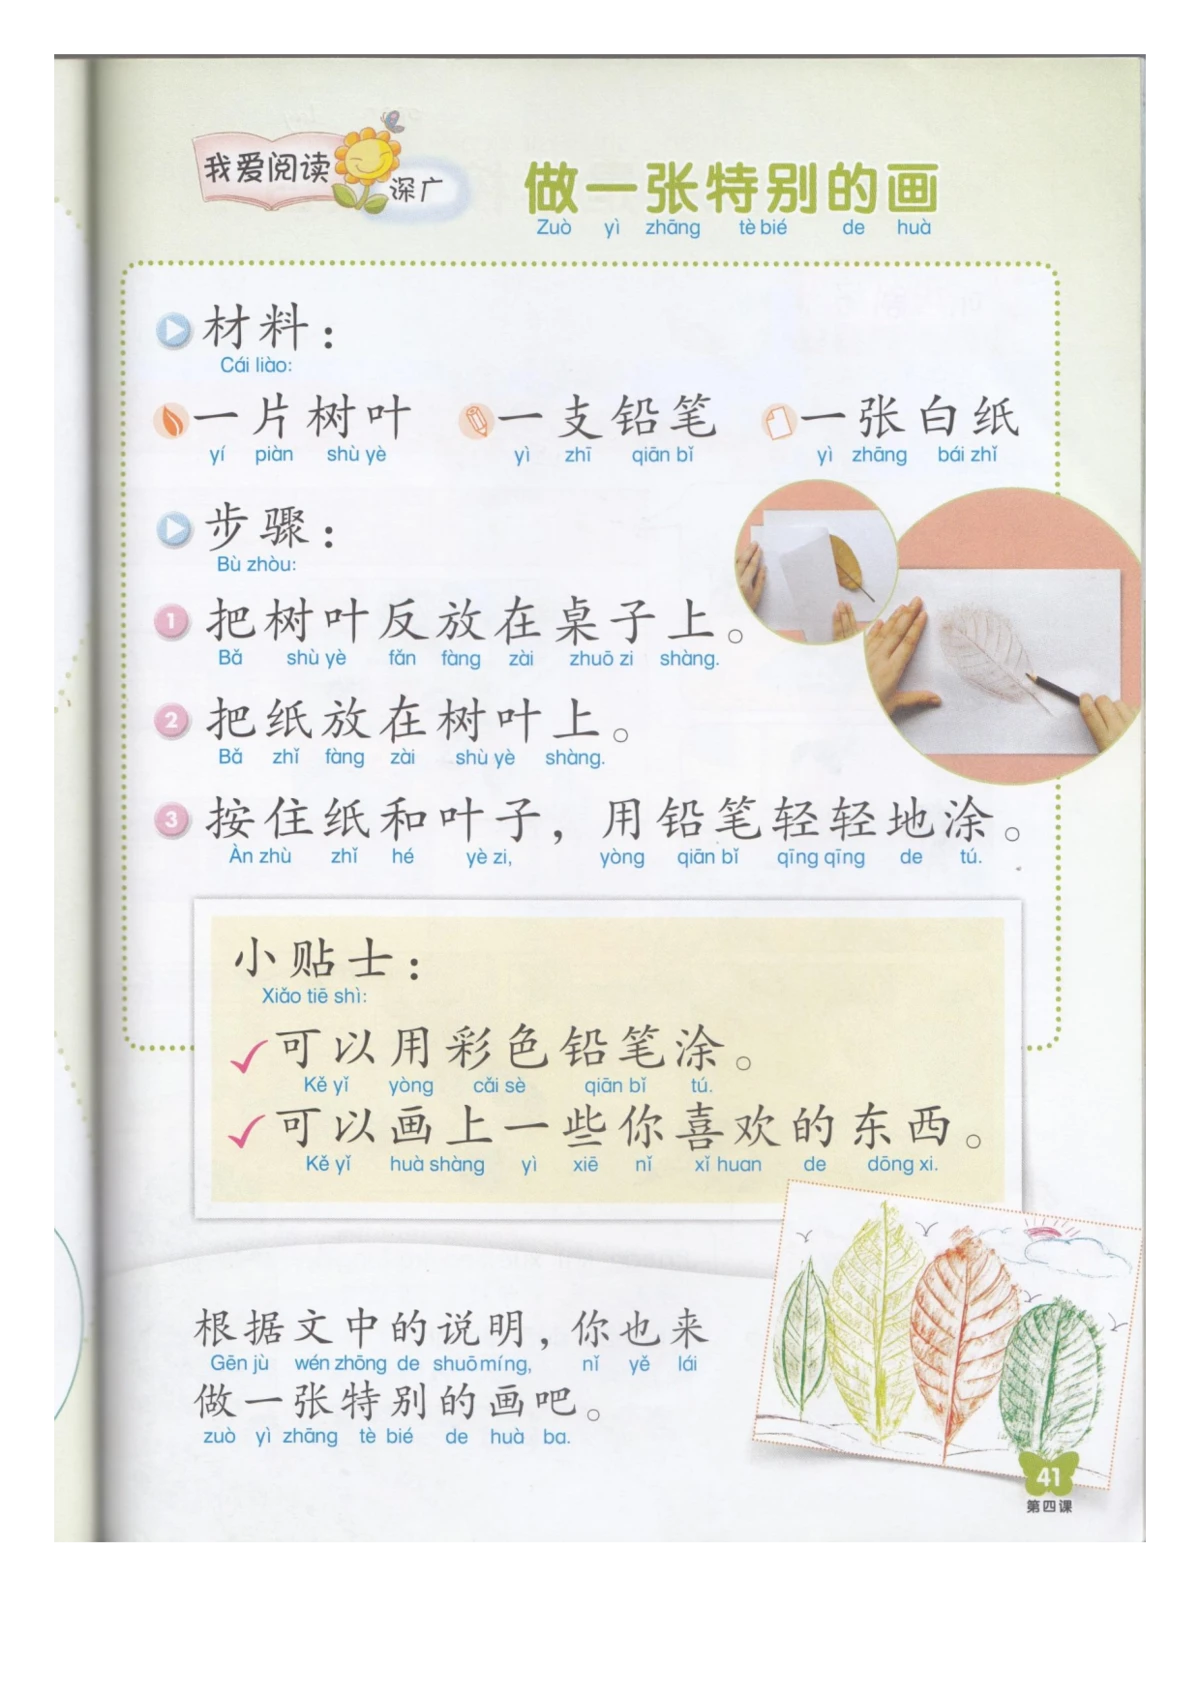 我爱阅读
深广
做一张特别的画
Zuò yì zhāng tè bié de huà
材料：
Cái liào:
一片树叶 一支铅笔 一张白纸
yí piàn shù yè yì zhī qiān bǐ yì zhāng bái zhǐ
步骤：
Bù zhòu:
1 把树叶反放在桌子上。
Bǎ shù yè fǎn fàng zài zhuō zi shàng.
2 把纸放在树叶上。
Bǎ zhǐ fàng zài shù yè shàng.
3 按住纸和叶子，用铅笔轻轻地涂。
Àn zhù zhǐ hé yè zi, yòng qiān bǐ qīng qīng de tú.
小贴士：
Xiǎo tiē shì:
可以用彩色铅笔涂。
Kě yǐ yòng cǎi sè qiān bǐ tú.
可以画上一些你喜欢的东西。
Kě yǐ huà shàng yì xiē nǐ xǐ huan de dōng xi.
根据文中的说明，你也来
Gēn jù wén zhōng de shuō míng, nǐ yě lái
做一张特别的画吧。
zuò yì zhāng tè bié de huà ba.
41
第四课